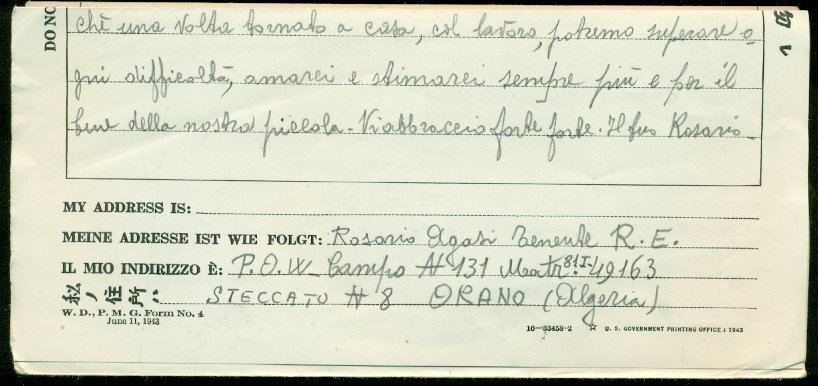 DO NO
chè una volta tornato a casa, col lavoro, potremo superare o_
gni difficoltà, amarci e stimarci sempre più e per il
bene della nostra piccola - Vi abbraccio forte forte. Il tuo Rosario -
MY ADDRESS IS:
MEINE ADRESSE IST WIE FOLGT: Rosario Agati Tenente R. E.
IL MIO INDIRIZZO È: P.O.W_ Campo # 131 Matr. 81I-49163
私ノ住所: STECCATO # 8 ORANO (Algeria)
W. D., P. M. G. Form No. 4
June 11, 1943
16—33458-2 ☆ U. S. GOVERNMENT PRINTING OFFICE : 1943